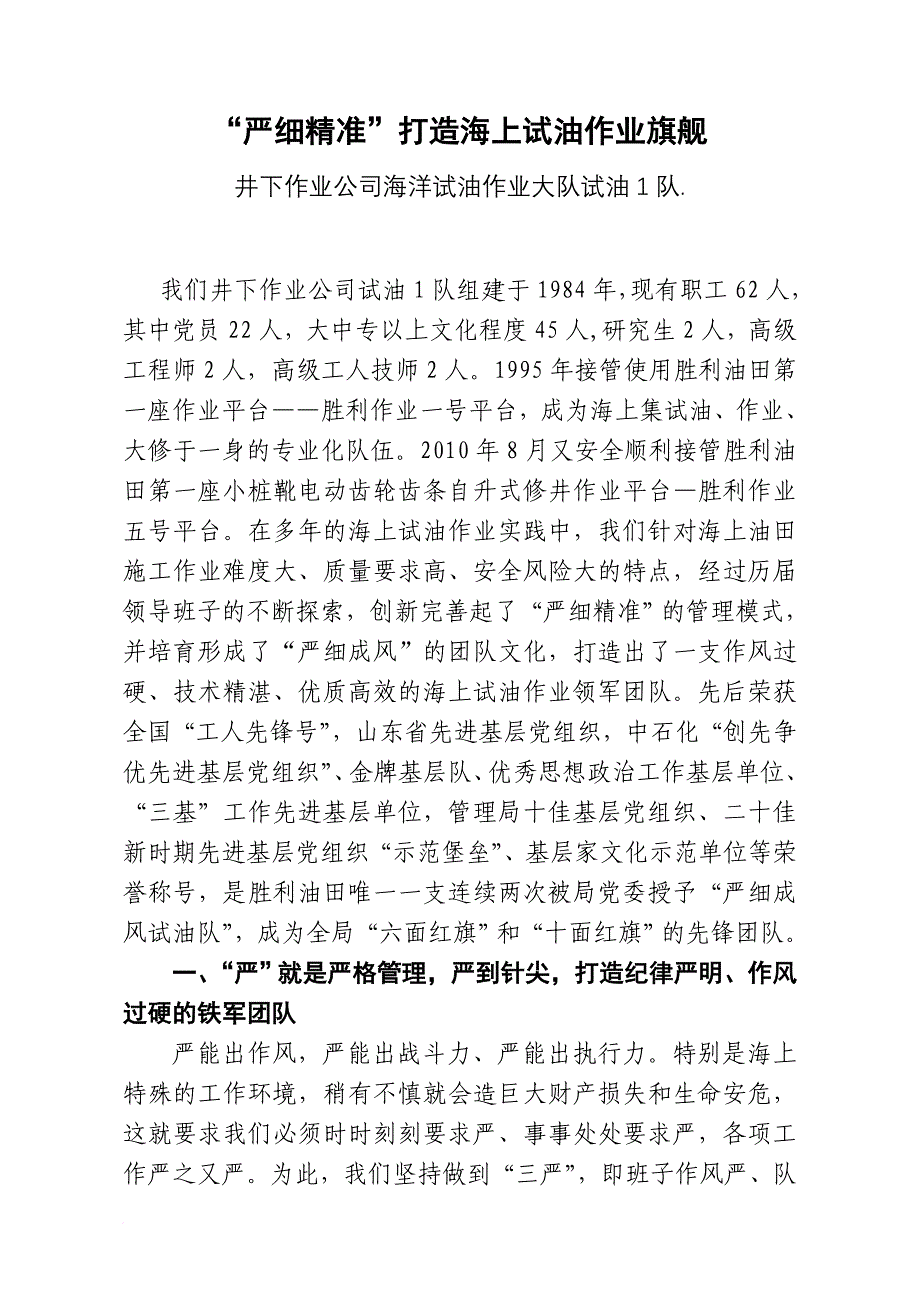 “严细精准”打造海上试油作业旗舰
井下作业公司海洋试油作业大队试油1队.
我们井下作业公司试油1队组建于1984年,现有职工62人,
其中党员22人，大中专以上文化程度45人,研究生2人，高级
工程师2人，高级工人技师2人。1995年接管使用胜利油田第
一座作业平台——胜利作业一号平台，成为海上集试油、作业、
大修于一身的专业化队伍。2010年8月又安全顺利接管胜利油
田第一座小桩靴电动齿轮齿条自升式修井作业平台—胜利作业
五号平台。在多年的海上试油作业实践中，我们针对海上油田
施工作业难度大、质量要求高、安全风险大的特点，经过历届
领导班子的不断探索，创新完善起了“严细精准”的管理模式，
并培育形成了“严细成风”的团队文化，打造出了一支作风过
硬、技术精湛、优质高效的海上试油作业领军团队。先后荣获
全国“工人先锋号”，山东省先进基层党组织，中石化“创先争
优先进基层党组织”、金牌基层队、优秀思想政治工作基层单位、
“三基”工作先进基层单位，管理局十佳基层党组织、二十佳
新时期先进基层党组织“示范堡垒”、基层家文化示范单位等荣
誉称号，是胜利油田唯一一支连续两次被局党委授予“严细成
风试油队”，成为全局“六面红旗”和“十面红旗”的先锋团队。
一、“严”就是严格管理，严到针尖，打造纪律严明、作风
过硬的铁军团队
严能出作风，严能出战斗力、严能出执行力。特别是海上
特殊的工作环境，稍有不慎就会造巨大财产损失和生命安危，
这就要求我们必须时时刻刻要求严、事事处处要求严，各项工
作严之又严。为此，我们坚持做到“三严”，即班子作风严、队